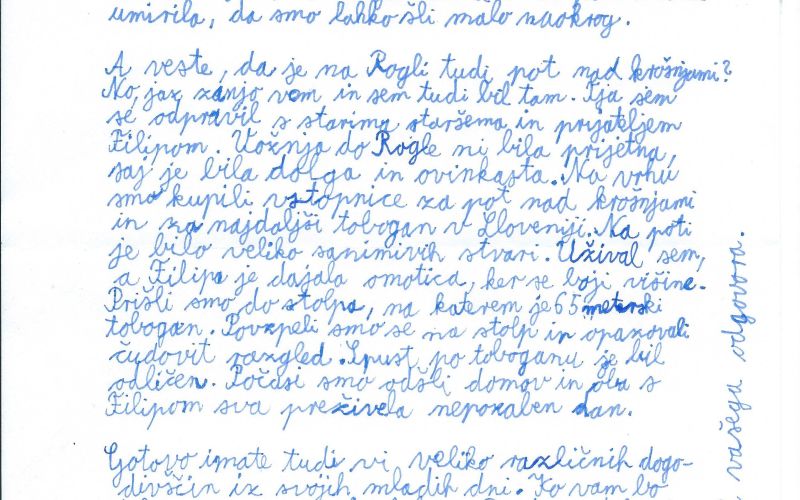 umirila, da smo lahko šli malo naokrog.
A veste, da je na Rogli tudi pot nad krošnjami?
No, jaz zanjo vem in sem tudi bil tam. Tja sem
se odpravil s starima staršema in prijateljem
Filipom. Vožnja do Rogle ni bila prijetna,
saj je bila dolga in ovinkasta. Na vrhu
smo kupili vstopnice za pot nad krošnjami
in za najdaljši tobogan v Sloveniji. Na poti
je bilo veliko sanimivih stvari. Užival sem,
a Filipa je dajala omotica, ker se boji višine.
Prišli smo do stolpa, na katerem je 65 meterski
tobogan. Povzpeli smo se na stolp in opazovali
čudovit razgled. Spust po toboganu je bil
odličen. Počasi smo odšli domov in oba s
Filipom sva preživela nepozaben dan.
Gotovo imate tudi vi veliko različnih dogo-
divščin iz svojih mladih dni. Ko vam bo
vašega odgovora.